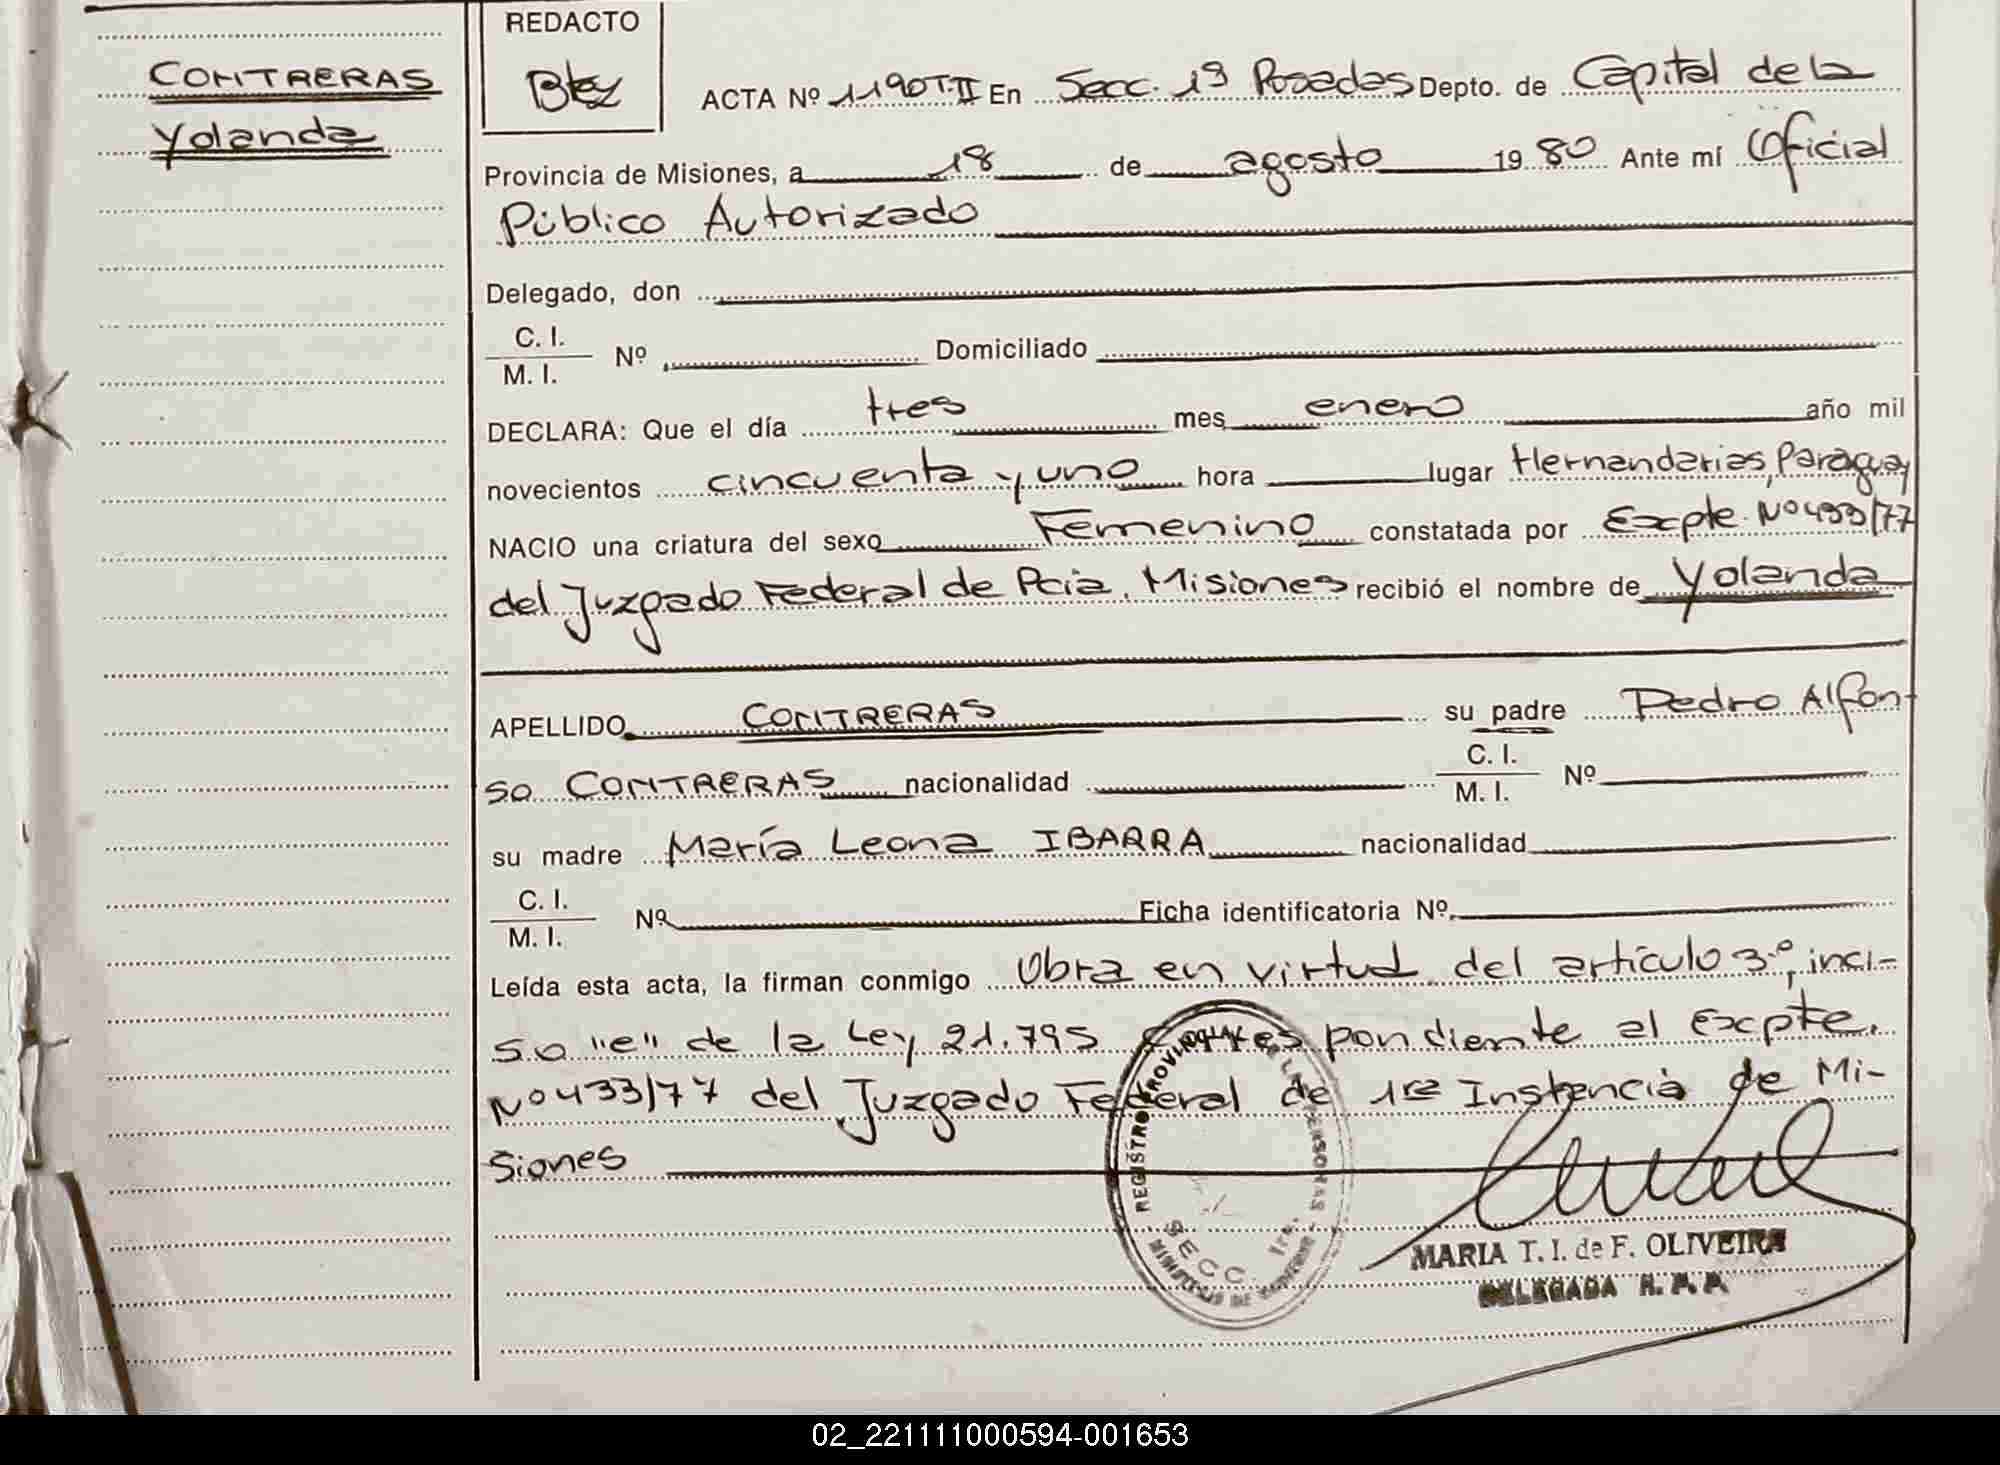 CONTRERAS
Yolanda
REDACTO
ACTA Nº 1190T.II En Secc. 1ª Posadas Depto. de Capital de la
Provincia de Misiones, a 18 de agosto 1980 Ante mí Oficial
Público Autorizado
Delegado, don
C. I.
M. I. Nº Domiciliado
DECLARA: Que el día tres mes enero año mil
novecientos cincuenta y uno hora lugar Hernandarias, Paraguay
NACIO una criatura del sexo Femenino constatada por Excpte. Nº 433/77
del Juzgado Federal de Pcia. Misiones recibió el nombre de Yolanda
APELLIDO CONTRERAS su padre Pedro Alfon-
so CONTRERAS nacionalidad C. I.
M. I. Nº
su madre María Leona IBARRA nacionalidad
C. I.
M. I. Nº Ficha identificatoria Nº
Leída esta acta, la firman conmigo Obra en virtud del artículo 3º, inci-
so "e" de la Ley 21.795 Correspondiente al Excpte.
Nº 433/77 del Juzgado Federal de 1ra Instancia de Mi-
siones
REGISTRO PROVINCIAL DE LAS PERSONAS
SECC. 1ra.
MINISTERIO DE GOBIERNO
MARIA T. I. de F. OLIVEIRA
DELEGADA R. P. P.
02_221111000594-001653